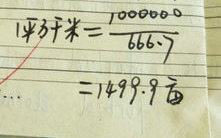 1平方千米=1000000/666.7
=1499.9亩